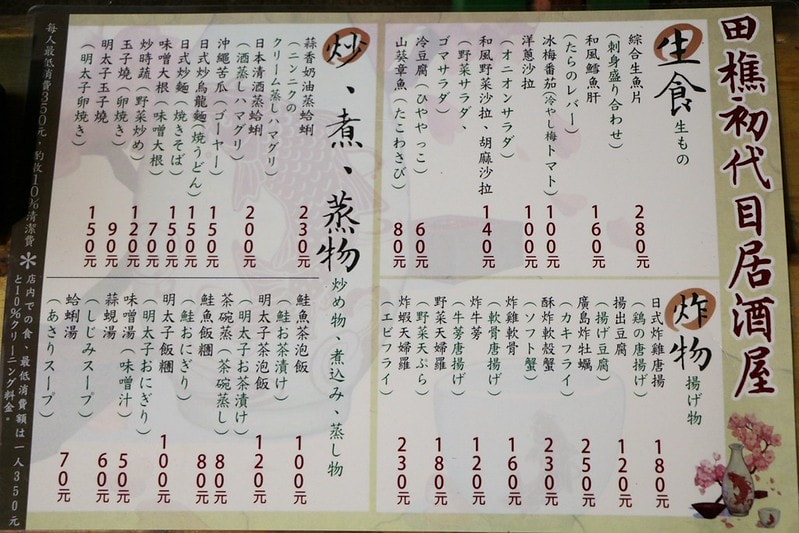 田樵初代目居酒屋
生食 生もの
綜合生魚片 280元
(刺身盛り合わせ)
和風鱈魚肝 160元
(たらのレバー)
冰梅番茄(冷やし梅トマト) 100元
洋蔥沙拉 100元
(オニオンサラダ)
和風野菜沙拉、胡麻沙拉 140元
(野菜サラダ、
ゴマサラダ)
冷豆腐(ひややっこ) 60元
山葵章魚(たこわさび) 80元
炸物 揚げ物
日式炸雞唐揚 180元
(鶏の唐揚げ)
揚出豆腐 120元
(揚げ豆腐)
廣島炸牡蠣 250元
(カキフライ)
酥炸軟殼蟹 230元
(ソフト蟹)
炸雞軟骨 160元
(軟骨唐揚げ)
炸牛蒡 120元
(牛蒡唐揚げ)
野菜天婦羅 180元
(野菜天ぷら)
炸蝦天婦羅 230元
(エビフライ)
炒、煮、蒸物 炒め物、煮込み、蒸し物
蒜香奶油蒸蛤蜊 230元
(ニンニクの
クリーム蒸しハマグリ)
日本清酒蒸蛤蜊 200元
(酒蒸しハマグリ)
沖繩苦瓜(ゴーヤー) 150元
日式炒烏龍麵(焼うどん) 150元
日式炒麵(焼きそば) 150元
味噌大根(味噌大根) 70元
炒時蔬(野菜炒め) 120元
玉子燒(卵焼き) 90元
明太子玉子燒 150元
(明太子卵焼き)
鮭魚茶泡飯 100元
(鮭お茶漬け)
明太子茶泡飯 120元
(明太子お茶漬け)
茶碗蒸(茶碗蒸し) 80元
鮭魚飯糰 80元
(鮭おにぎり)
明太子飯糰 100元
(明太子おにぎり)
味噌湯(味噌汁) 50元
蒜蜆湯 60元
(しじみスープ)
蛤蜊湯 70元
(あさりスープ)
每人最低消費350元，酌收10%清潔費 ＊ 店内での食、最低消費額は一人350元
と10%クリーニング料金。